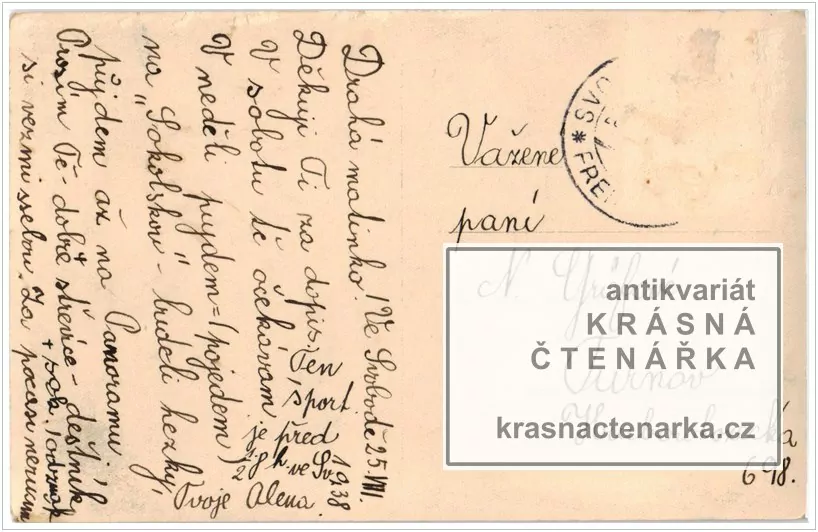 Drahá matinko! Ve Svobodě 25/VIII.
1938
Děkuji Ti za dopis. Ten sport.
v sobotu tě očekávam je před
V neděli pujdem=(pojedem) 1/2 8 h. ve Sv.
na "Sokolskou" - budeli hezky,
půjdem až na Panoramu.
Prosím Tě - dobře střevíce - deštník,
si vezmi ssebou. Za počasí neručím
Tvoje Alena.
Vážené
paní
N.
Turnov
698.
* FRE
antikvariát
KRÁSNÁ
ČTENÁŘKA
krasnactenarka.cz